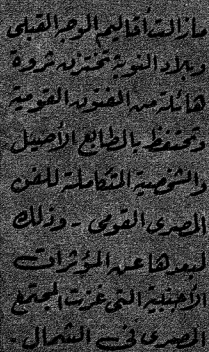 مازالت أقاليم الوجه القبلى
وبلاد النوبة تختزن ثروة
هائلة من الفنون القومية
وتحتفظ بالطابع الأصيل
والشخصية المتكاملة للفن
المصرى القومى - وذلك
لبعدها عن المؤثرات
الأجنبية التى غزت المجتمع
المصرى فى الشمال -